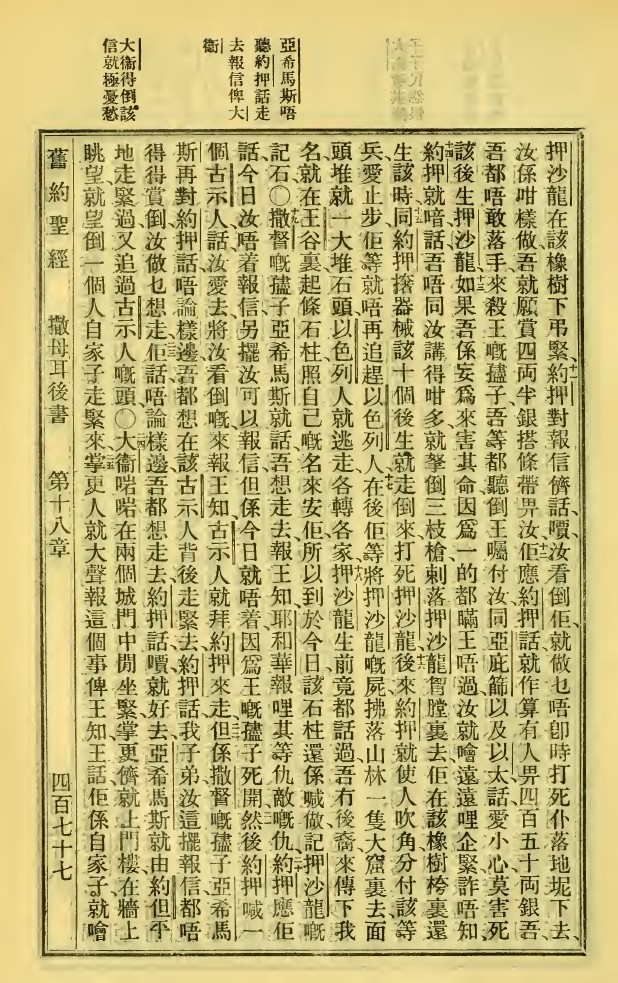 亞希馬斯唔
聽約押話走
去報信俾大
衞
大衞得倒該
信就極憂愁
押沙龍在該橡樹下弔緊、約押對報信儕話、嘪、汝看倒佢、就做乜唔卽時打死仆落地坭下去、
汝係咁樣做、吾就願賞四両半銀、搭條帶畀汝、佢應約押話、就作算有人畀四百五十両銀吾、
吾都唔敢落手來殺王嘅孻子、吾等都聽倒王囑付汝、同亞庇篩、以及以太話、愛小心、莫害死
該後生押沙龍、如果吾係妄爲來害其命、因爲一的都瞞王唔過、汝就噲遠遠哩企緊詐唔知、
約押就喑話、吾唔同汝講得咁多、就拏倒三枝槍、刺落押沙龍胷膛裏去、佢在該橡樹桍裏還
生、該時同約押𢹂器械該十個後生、就走倒來打死押沙龍、後來約押就使人吹角、分付該等
兵愛止步、佢等就唔再追趕以色列人、在後佢等將押沙龍嘅屍、拂落山林一隻大窟裏去、面
頭堆就一大堆石頭、以色列人就逃走、各轉各家、押沙龍生前竟都話過、吾冇後裔來傳下我
名、就在王谷裏起條石柱、照自己嘅名來安佢、所以到於今日、該石柱還係喊做記押沙龍嘅
記石、〇撒督嘅孻子亞希馬斯就話、吾想走去報王知、耶和華報哩其等仇敵嘅仇、約押應佢
話、今日汝唔着報信、另擺汝可以報信、但係今日就唔着、因爲王嘅孻子死開、然後約押喊一
個古示人話、汝愛去將汝看倒嘅來報王知、古示人就拜約押來走、但係撒督嘅孻子亞希馬
斯再對約押話、唔論樣邊、吾都想在該古示人背後走緊去、約押話、我子弟、汝這擺報信都唔
得得賞倒、汝做乜想走、佢話、唔論樣邊、吾都想走去、約押話、嘪就好去、亞希馬斯就由約但平
地走緊過、又追過古示人嘅頭、〇大衞啱啱在兩個城門中間坐緊、掌更儕就上門樓、在牆上
眺望、就望倒一個人自家子走緊來、掌更人就大聲報這個事俾王知、王話、佢係自家子、就噲
舊約聖經　撒母耳後書　第十八章　四百七十七